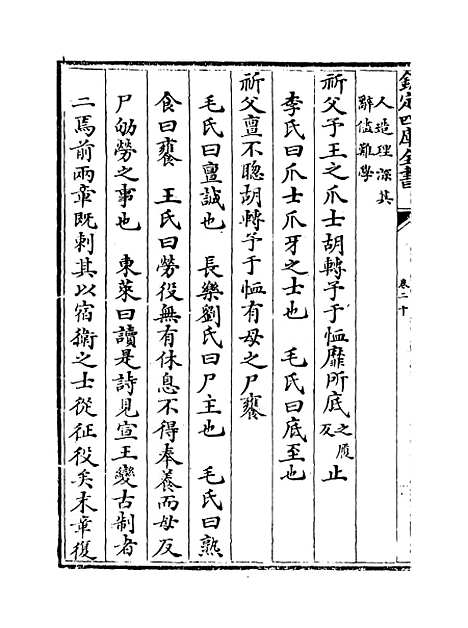 欽定四庫全書
卷二十
人造理深其
辭儘難學
祈父予王之爪士胡轉予于恤靡所底之履反止
李氏曰爪士爪牙之士也 毛氏曰底至也
祈父亶不聰胡轉予于恤有母之尸饔
毛氏曰亶誠也 長樂劉氏曰尸主也 毛氏曰熟
食曰饔 王氏曰勞役無有休息不得奉養而母反
尸劬勞之事也 東萊曰讀是詩見宣王變古制者
二焉前兩章既刺其以宿衛之士從征役矣末章復